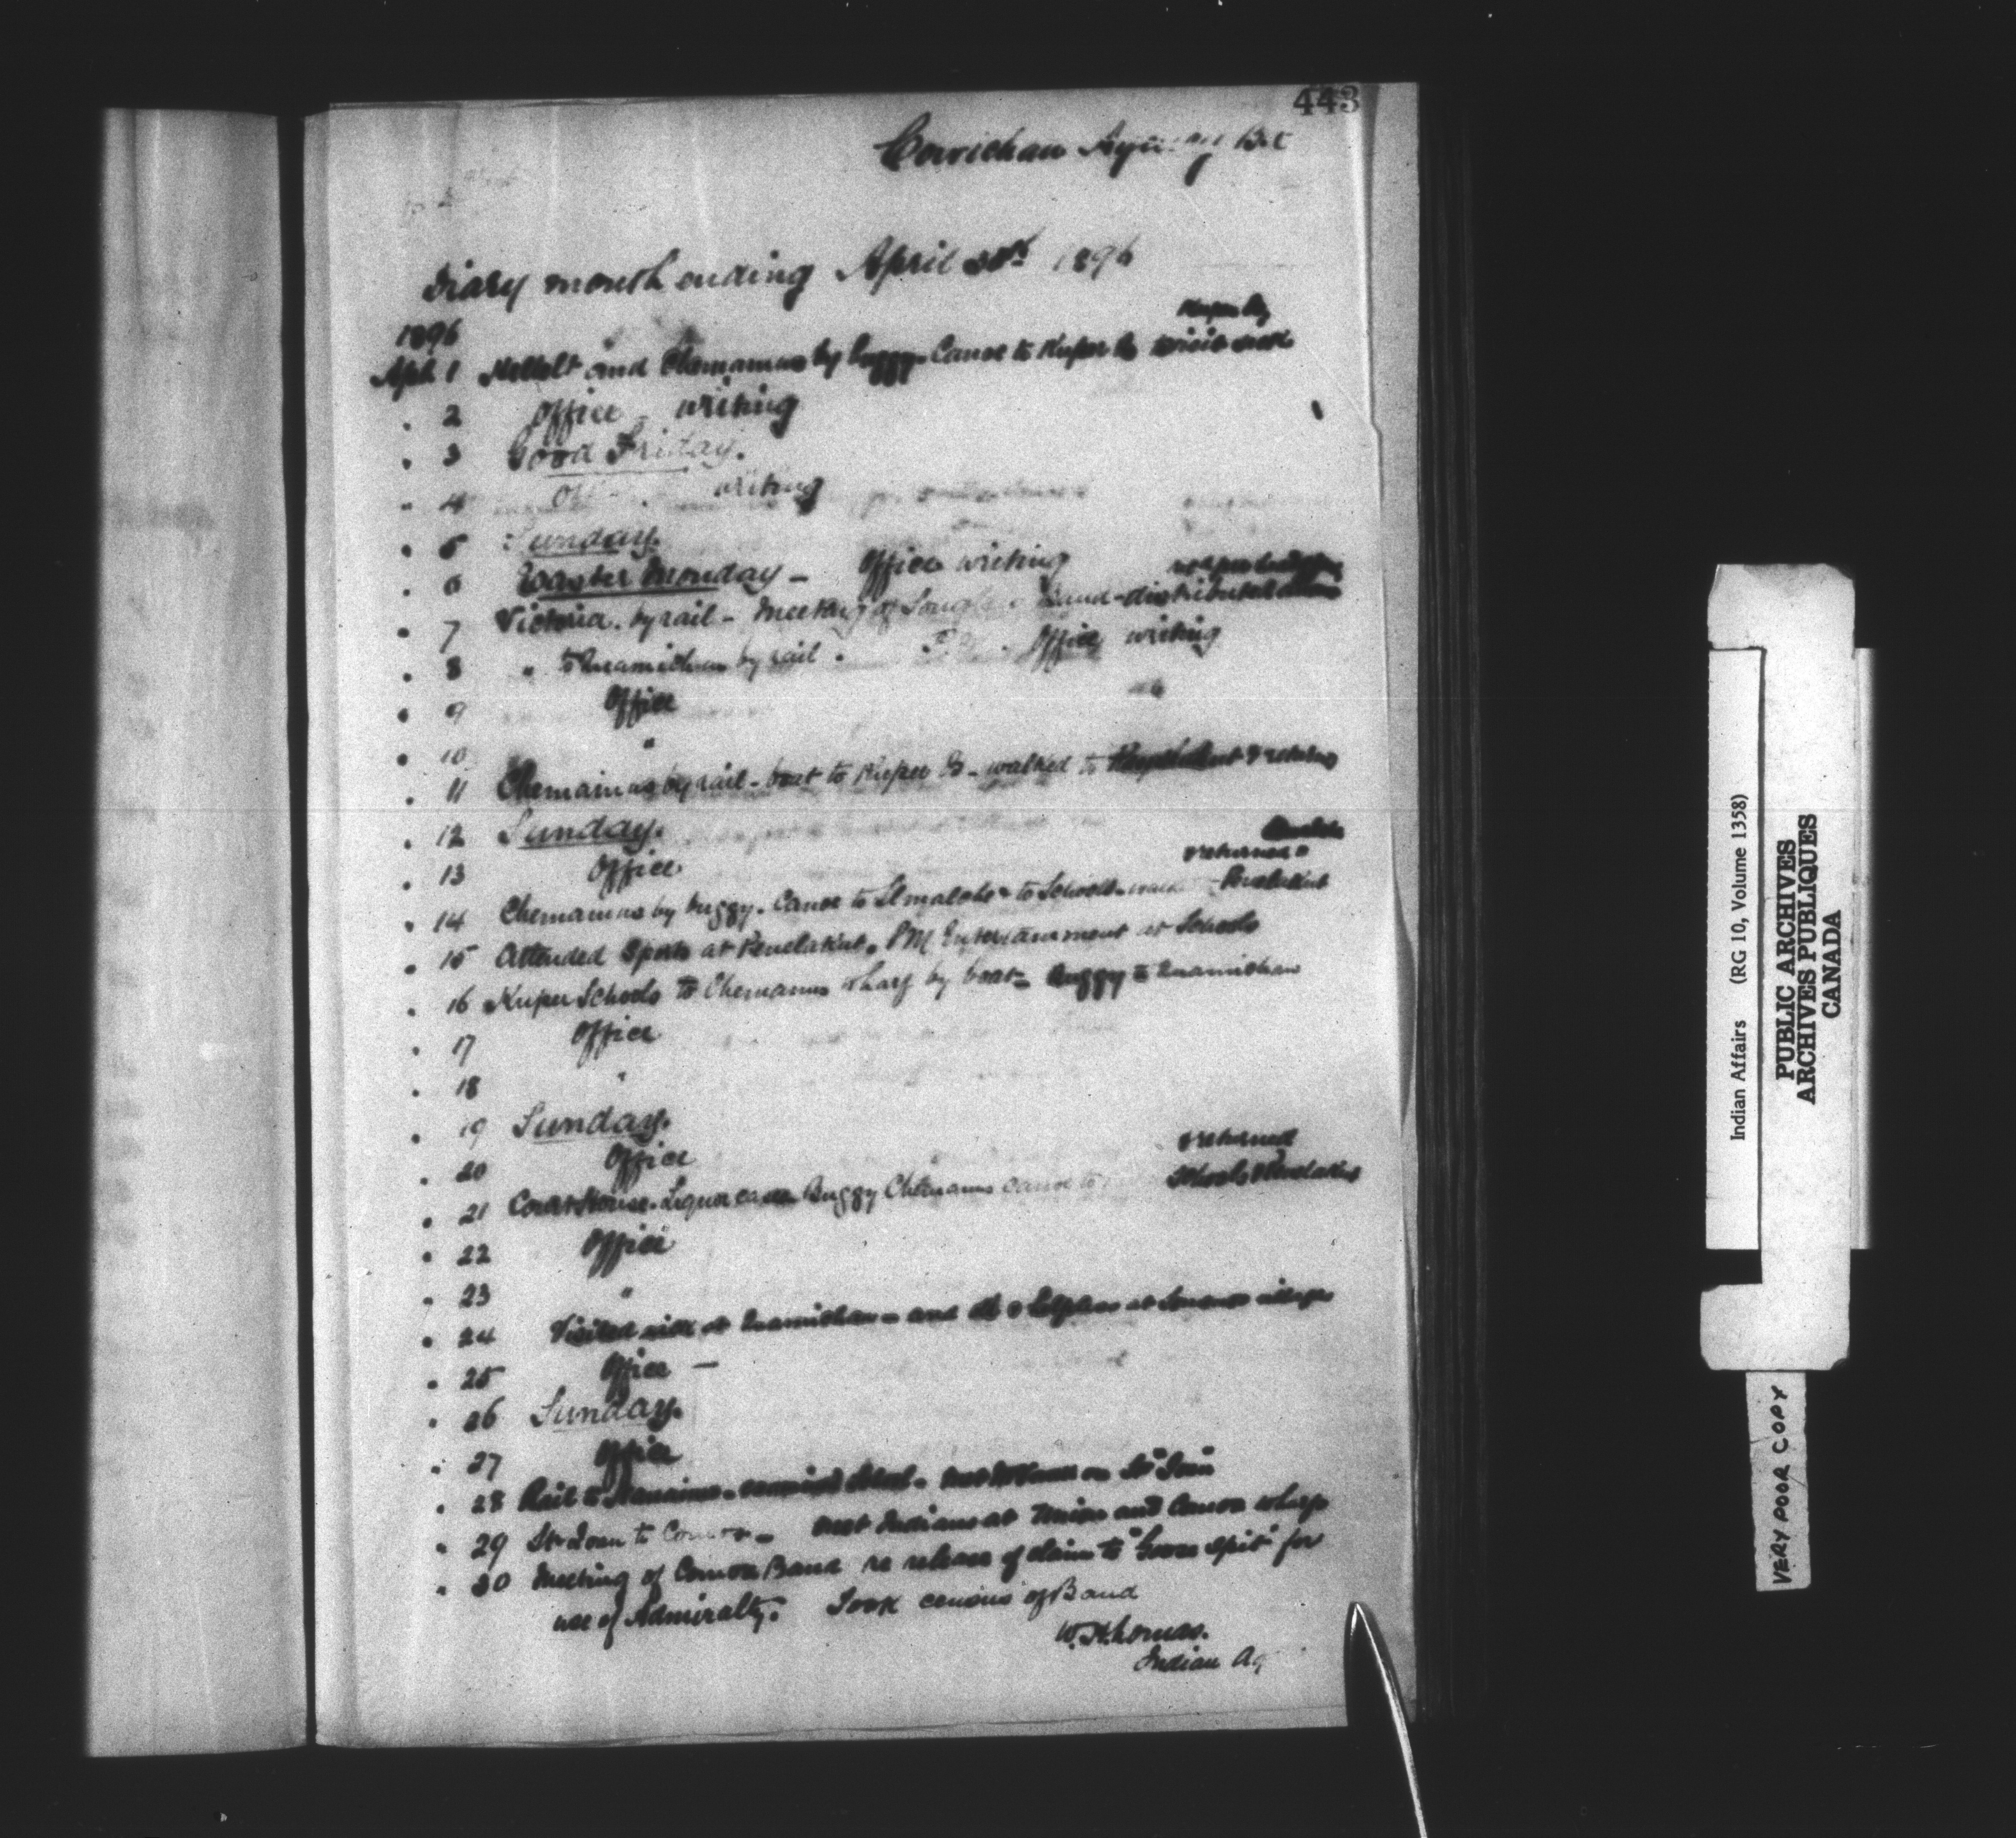 443
Cowichan Agency B.C
Diary month ending April 30th 1896
1896
Kuper Is
Apl. 1 Hellelt and Chemainus by buggy. Canoe to Kuper Is visit sick
" 2 Office - writing
" 3 Good Friday.
" 4 Office writing
" 5 Sunday.
" 6 Easter Monday - Office writing
" 7 Victoria. by rail - Meeting of Songhees Band - distributed
" 8 " to Quamichan by rail. Office writing
" 9 Office
" 10 "
" 11 Chemainus by rail - boat to Kuper Is - walked to Penelakut & returned
" 12 Sunday.
" 13 Office
& returned
" 14 Chemainus by buggy. Canoe to & to Schools - Penelakut
" 15 Attended Sports at Penelakut. PM Entertainment at Schools
" 16 Kuper Schools to Chemainus wharf by boat - Buggy to Quamichan
" 17 Office
" 18 "
" 19 Sunday.
" 20 Office
& returned
" 21 Court House. Liquor case Buggy Chemainus canoe to Schools & Penelakut
" 22 Office
" 23 "
" 24 Visited sick at Quamichan - and at Somenos village
" 25 Office -
" 26 Sunday.
" 27 Office
" 28 Rail to Nanaimo - School - on Str "Joan"
" 29 Str Joan to Comox - Met Indians at Union and Comox wharf
" 30 Meeting of Comox Band re release of claim to "Goose Spit" for
use of Admiralty. Took census of Band
W. H. Lomas.
Indian Ag
Indian Affairs (RG 10, Volume 1358)
PUBLIC ARCHIVES
ARCHIVES PUBLIQUES
CANADA
VERY POOR COPY